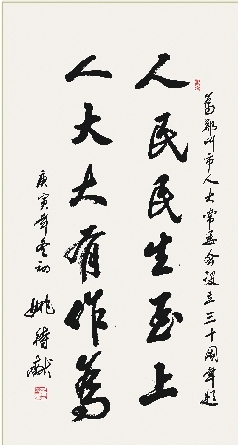 為鄭州市人大常委会设立三十周年题
人民民生至上
人大大有作為
庚寅年夏初
姚待献